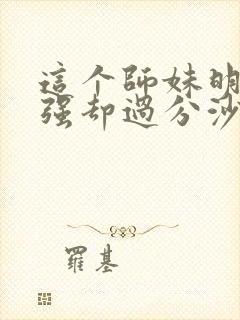 這个師妹明
强却過分沙
羅基